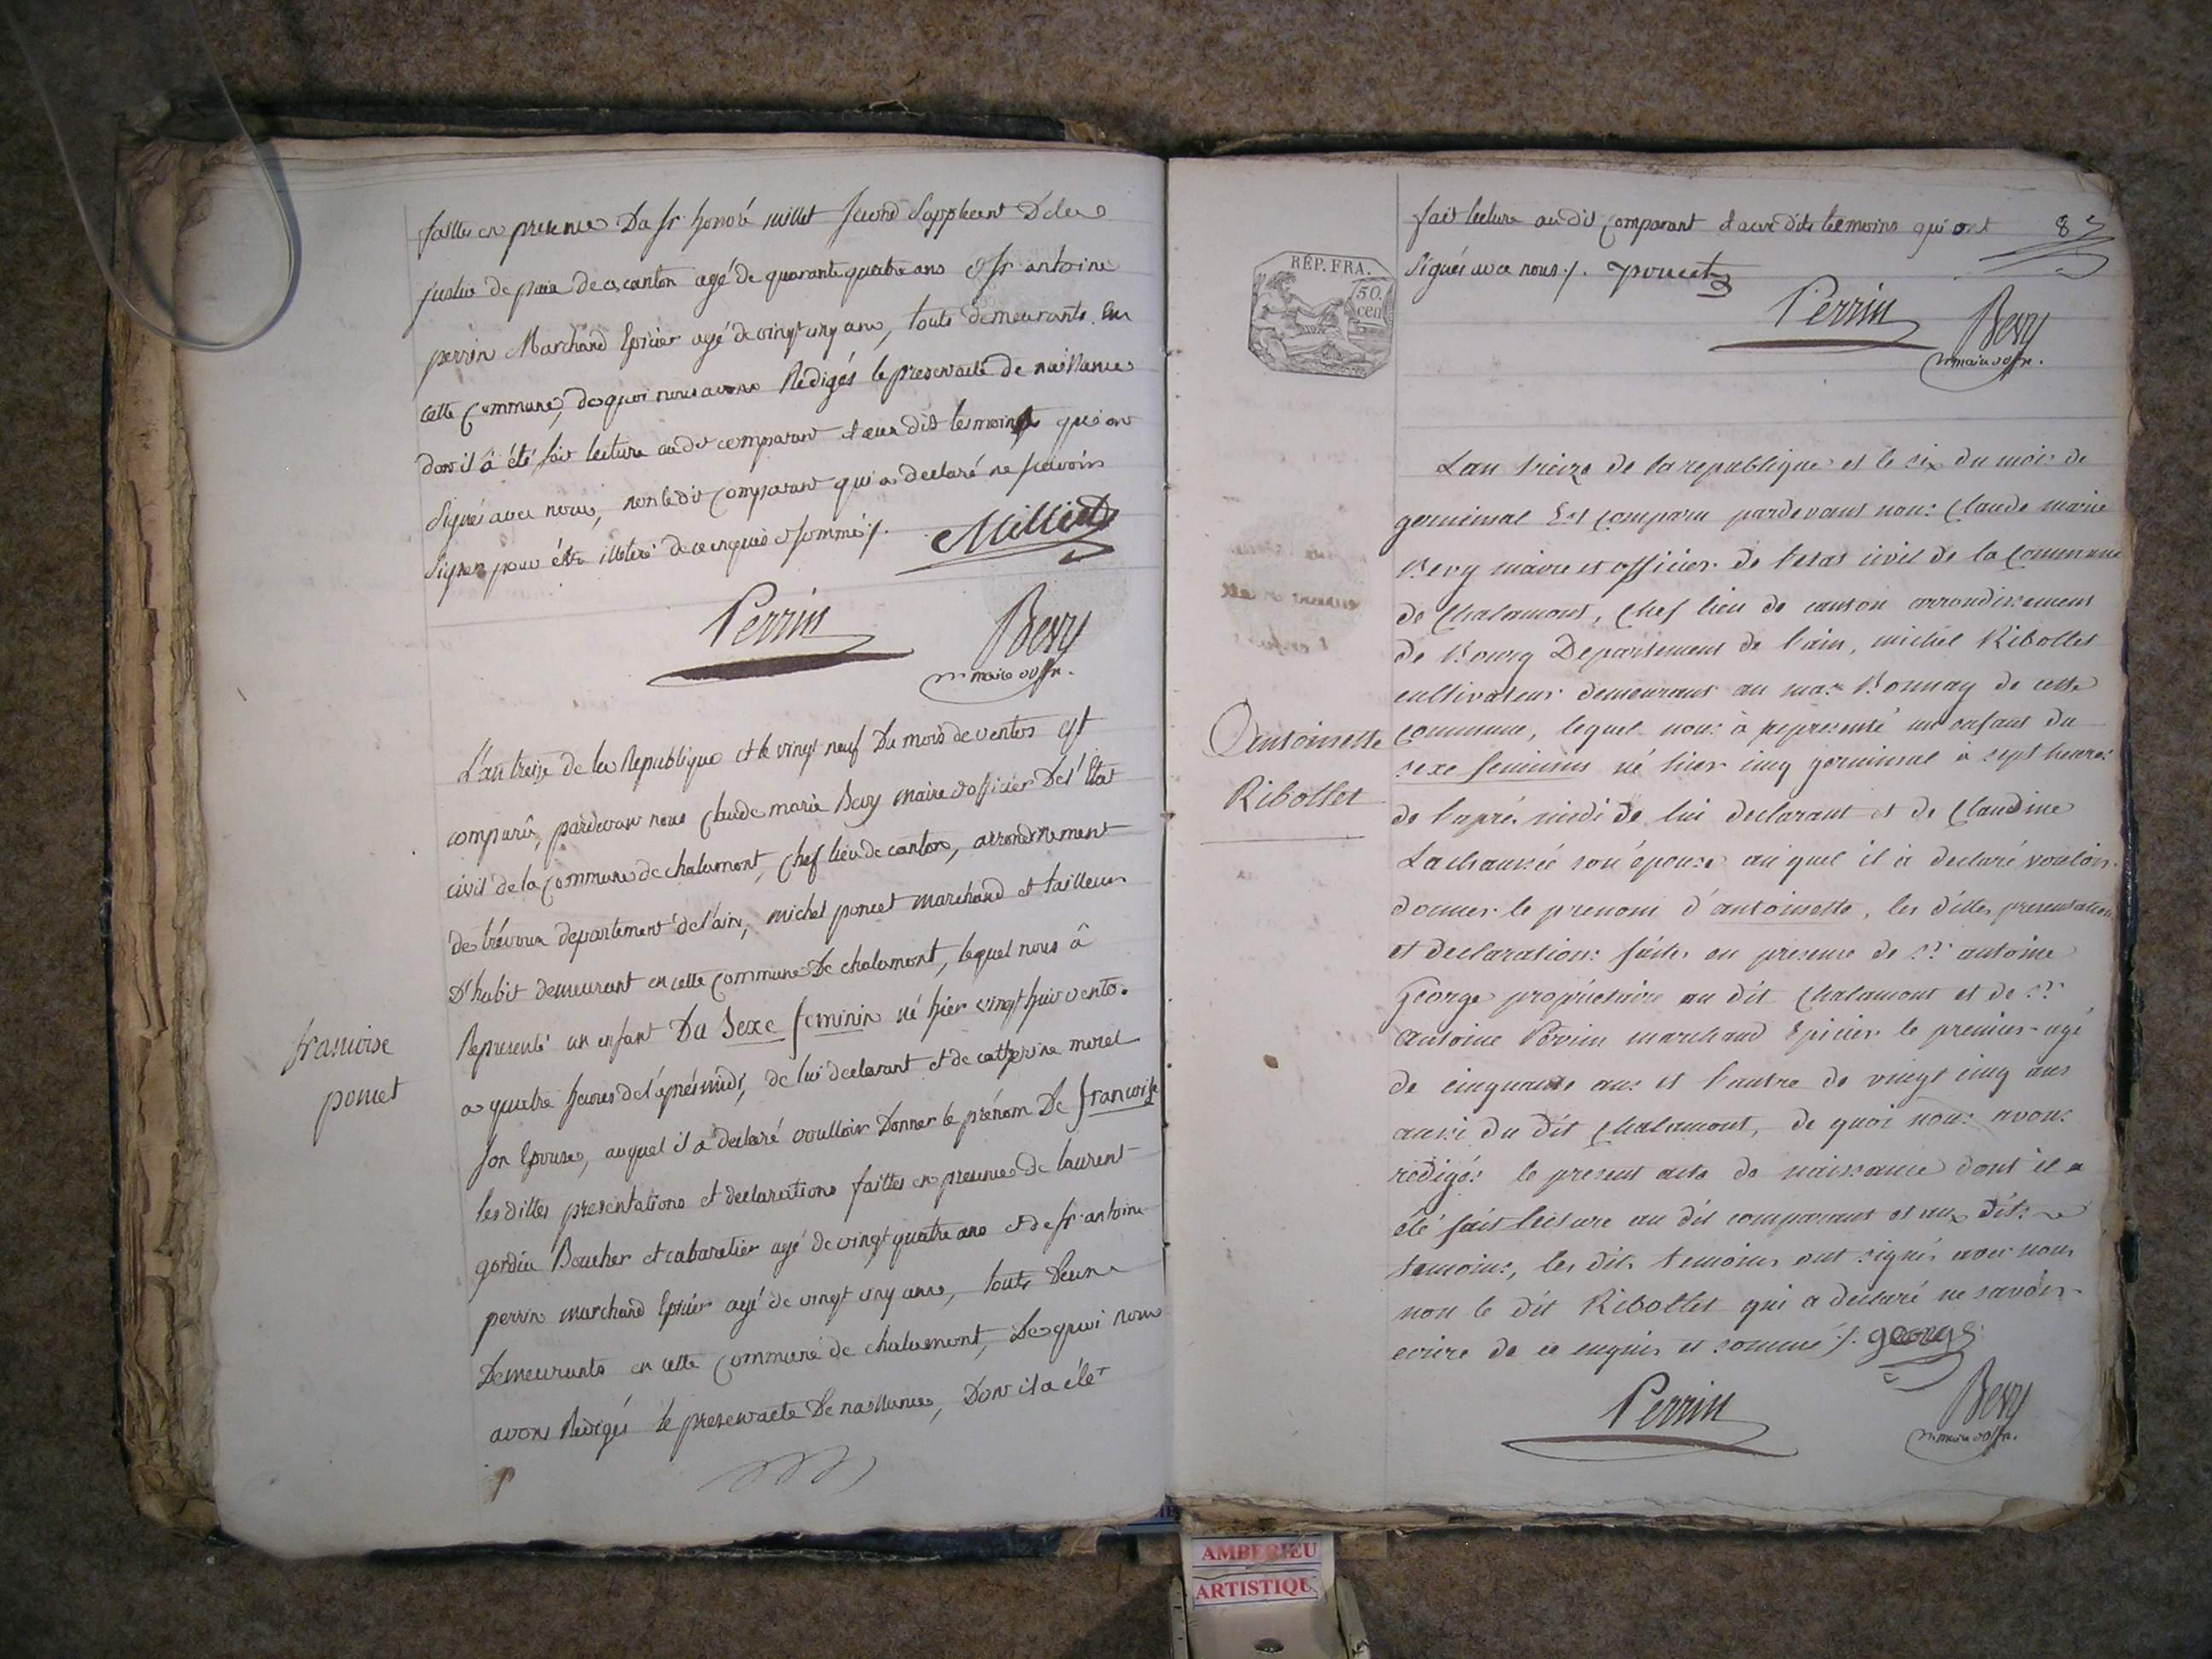 faittes en presence Du sr. honoré millet second Suppleant De la
justice de paix de ce canton agé de quarante quatre ans & sr. antoine
perrin Marchand Epicier agé de vingt cinq ans, touts demeurants en
cette Commune, de quoi nous avons Redigés le present acte de naissance
dont il â été fait lecture audit comparant & aux dits temoins qui ont
Signés avec nous, non le dit comparant qui a declaré ne sçavoir
Signer pour être illiteré de ce enquis & sommé /.
Milliet
Perrin
Bevy
maire & offr.
L'an treize de la Republique et le vingt neuf Du mois de ventos est
comparû, pardevant nous Claude marie Bevy maire & officier De l'Etat
civil de la Commune de chalamont, chef lieu de canton, arrondissement
de trévoux departement de l'ain, michel poncet marchand et tailleur
D'habit demeurant en cette Commune De chalamont, lequel nous â
Representé un enfant Du Sexe feminin né hier vingt huit vento.
a quatre heures de l'après midi, de lui declarant et de catherine morel
son Epouse, auquel il a declaré voulloir Donner le prénom De francoise
les dittes presentations et declarations faittes en presence de laurent
gordin Boucher et cabaretier agé de vingt quatre ans et de sr. antoine
perrin marchand Epicier agé de vingt cinq ans, touts Deux
Demeurants en cette Commune de chalamont, De quoi nous
avons Redigés le present acte De naissance, Dont il a été
francoise
poncet
fait lecture audit Comparant & aux dits temoins qui ont
87
Signés avec nous /. poncet
RÉP. FRA.
50.
cen
Perrin
Bevy
maire & offr.
Lan treize de la republique et le six du mois de
germinal Est comparu pardevant nous Claude marie
Bevy maire et officier de l'etat civil de la Commune
de Chalamont, Chef lieu de canton arrondissement
de Bourg Departement de l'ain, michel Ribollet
cultivateur demeurant au mas Bonnay de cette
Commune, lequel nous à representé un enfant du
sexe feminin né hier cinq germinal à sept heures
de l'après midi de lui declarant et de Claudine
Lachaussée son épouse au quel il à declaré vouloir
donner le prenom d'antoinette, les dittes presentations
et declarations faites en presence de sr. antoine
George propriétaire au dit Chalamont et de sr.
Antoine Perrin marchand Epicier le premier agé
de cinquante ans et l'autre de vingt cinq ans
aussi du dit Chalamont, de quoi nous avons
redigés le present acte de naissance dont il a
été fait lecture au dit comparant et aux dits
temoins, les dits temoins ont signés avec nous
non le dit Ribollet qui a declaré ne savoir
ecrire de ce enquis et sommé /. george
Antoinette
Ribollet
Perrin
Bevy
maire & offr.
AMBERIEU
ARTISTIQU